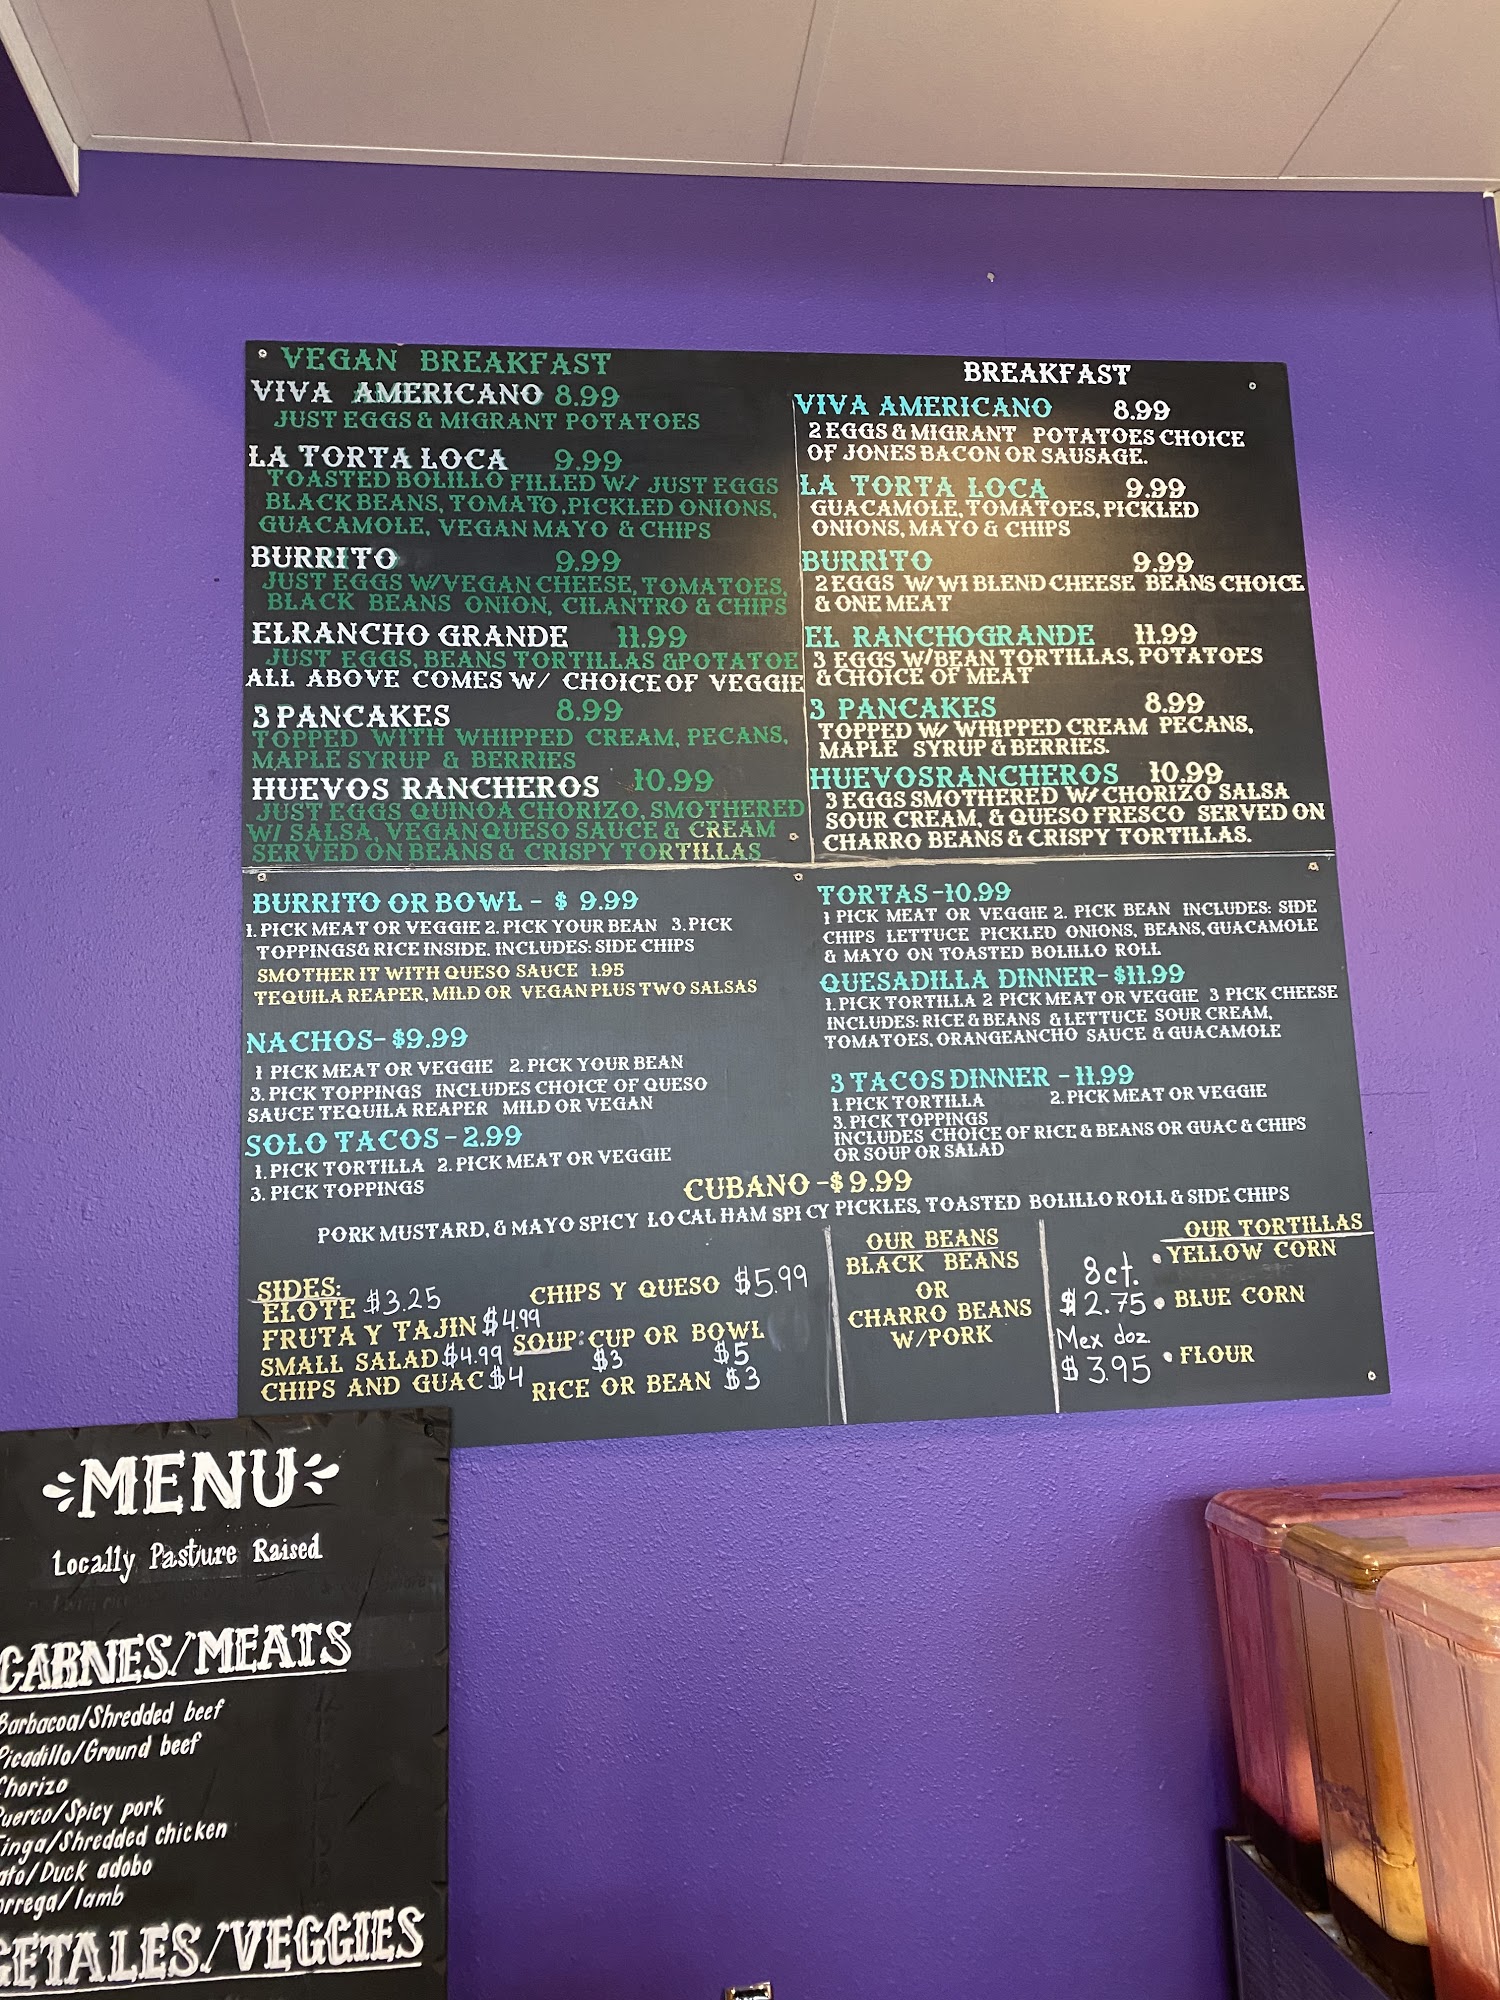 VEGAN BREAKFAST
VIVA AMERICANO 8.99
JUST EGGS & MIGRANT POTATOES
LA TORTA LOCA 9.99
TOASTED BOLILLO FILLED W/ JUST EGGS
BLACK BEANS, TOMATO, PICKLED ONIONS,
GUACAMOLE, VEGAN MAYO & CHIPS
BURRITO 9.99
JUST EGGS W/VEGAN CHEESE, TOMATOES,
BLACK BEANS ONION, CILANTRO & CHIPS
EL RANCHO GRANDE 11.99
JUST EGGS, BEANS TORTILLAS & POTATOE
ALL ABOVE COMES W/ CHOICE OF VEGGIE
3 PANCAKES 8.99
TOPPED WITH WHIPPED CREAM, PECANS,
MAPLE SYRUP & BERRIES
HUEVOS RANCHEROS 10.99
JUST EGGS QUINOA CHORIZO, SMOTHERED
W/ SALSA, VEGAN QUESO SAUCE & CREAM
SERVED ON BEANS & CRISPY TORTILLAS
BREAKFAST
VIVA AMERICANO 8.99
2 EGGS & MIGRANT POTATOES CHOICE
OF JONES BACON OR SAUSAGE.
LA TORTA LOCA 9.99
GUACAMOLE, TOMATOES, PICKLED
ONIONS, MAYO & CHIPS
BURRITO 9.99
2 EGGS W/ WI BLEND CHEESE BEANS CHOICE
& ONE MEAT
EL RANCHO GRANDE 11.99
3 EGGS W/BEAN TORTILLAS, POTATOES
& CHOICE OF MEAT
3 PANCAKES 8.99
TOPPED W/ WHIPPED CREAM PECANS,
MAPLE SYRUP & BERRIES.
HUEVOS RANCHEROS 10.99
3 EGGS SMOTHERED W/ CHORIZO SALSA
SOUR CREAM, & QUESO FRESCO SERVED ON
CHARRO BEANS & CRISPY TORTILLAS.
BURRITO OR BOWL - $ 9.99
1. PICK MEAT OR VEGGIE 2. PICK YOUR BEAN 3. PICK
TOPPINGS & RICE INSIDE. INCLUDES: SIDE CHIPS
SMOTHER IT WITH QUESO SAUCE 1.95
TEQUILA REAPER, MILD OR VEGAN PLUS TWO SALSAS
NACHOS - $9.99
1 PICK MEAT OR VEGGIE 2. PICK YOUR BEAN
3. PICK TOPPINGS INCLUDES CHOICE OF QUESO
SAUCE TEQUILA REAPER MILD OR VEGAN
SOLO TACOS - 2.99
1. PICK TORTILLA 2. PICK MEAT OR VEGGIE
3. PICK TOPPINGS
TORTAS - 10.99
1 PICK MEAT OR VEGGIE 2. PICK BEAN INCLUDES: SIDE
CHIPS LETTUCE PICKLED ONIONS, BEANS, GUACAMOLE
& MAYO ON TOASTED BOLILLO ROLL
QUESADILLA DINNER - $11.99
1. PICK TORTILLA 2 PICK MEAT OR VEGGIE 3 PICK CHEESE
INCLUDES: RICE & BEANS & LETTUCE SOUR CREAM,
TOMATOES, ORANGEANCHO SAUCE & GUACAMOLE
3 TACOS DINNER - 11.99
1. PICK TORTILLA 2. PICK MEAT OR VEGGIE
3. PICK TOPPINGS
INCLUDES CHOICE OF RICE & BEANS OR GUAC & CHIPS
OR SOUP OR SALAD
CUBANO - $ 9.99
PORK MUSTARD, & MAYO SPICY LOCAL HAM SPICY PICKLES, TOASTED BOLILLO ROLL & SIDE CHIPS
SIDES:
ELOTE $3.25
FRUTA Y TAJIN $4.99
SMALL SALAD $4.99
CHIPS AND GUAC $4
CHIPS Y QUESO $5.99
SOUP: CUP OR BOWL
$3 $5
RICE OR BEAN $3
OUR BEANS
BLACK BEANS
OR
CHARRO BEANS
W/PORK
OUR TORTILLAS
8ct. • YELLOW CORN
$2.75 • BLUE CORN
Mex doz
$3.95 • FLOUR
MENU
Locally Pasture Raised
CARNES/MEATS
Barbacoa/Shredded beef
Picadillo/Ground beef
Chorizo
Puerco/Spicy pork
Tinga/Shredded chicken
ato/Duck adobo
orrega/lamb
GETALES/VEGGIES